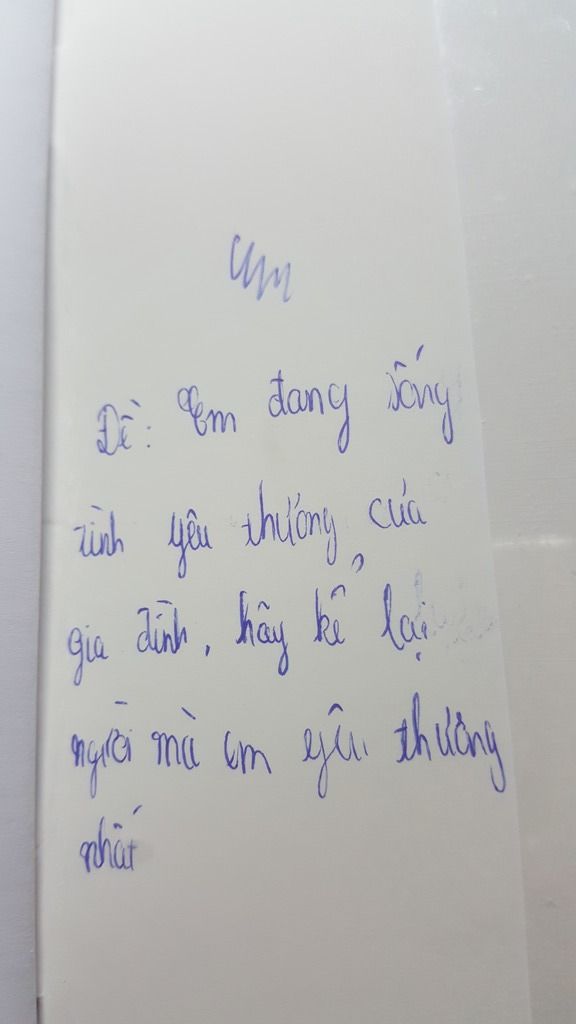 Đề: Em đang sống
tình yêu thương của
gia đình, hãy kể lại
người mà em yêu thương
nhất